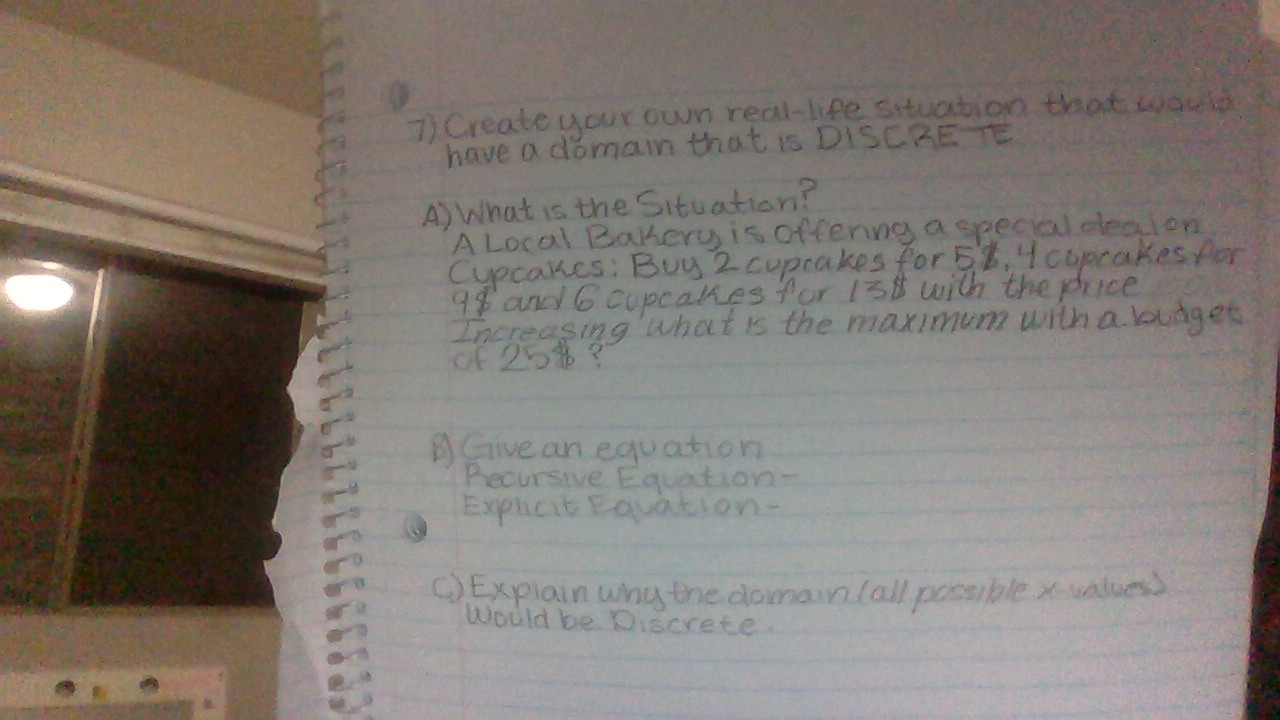 7) Create your own real-life situation that would
have a domain that is DISCRETE
A) What is the Situation?
A Local Bakery is offering a special deal on
Cupcakes: Buy 2 cupcakes for 5$, 4 cupcakes for
9$ and 6 cupcakes for 13$ with the price
Increasing what is the maximum with a budget
of 25$?
B) Give an equation
Recursive Equation-
Explicit Equation-
C) Explain why the domain (all possible x-values)
Would be Discrete.